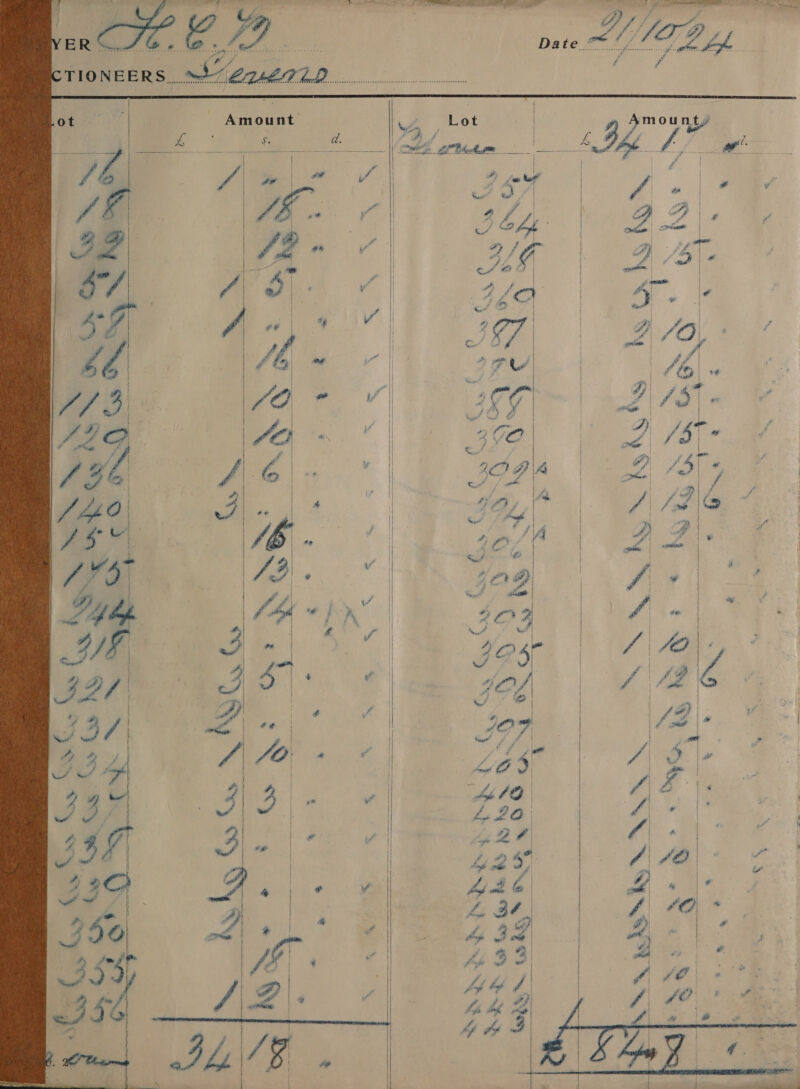 YER H.C.D Date 21/10/24
CTIONEERS Stevens
ot Amount
£ s. d.
16 1 " "
18 18 "
32 12 "
51 1 5 "
58 1 " "
66 16 "
113 10 "
129 10 "
136 1 6 "
140 3 " "
15 16 "
175 13 "
244 14 "
318 3 " "
321 3 5 "
331 2 " "
334 1 10 "
337 3 3 "
338 3 " "
339 2 " "
350 2 " "
355 18 "
356 1 2 "
34 18 "
Lot Amount
£ 34 17
357 1 " "
364 2 2 "
318 2 15 "
360 5 " "
387 2 10 "
16 "
388 2 15 "
390 2 15 "
392A 2 15 "
394A 1 12 6
2 2 "
302 1 " "
303 1 " "
305 1 10 "
306 1 12 6
307 12 "
405 1 5 "
410 1
420 1 " "
424 1 " "
425 1 10 "
426 2 " "
431 1 10 "
432 2 " "
433
441 1 10 "
442 1 10 "
443 1 " "
£ 84